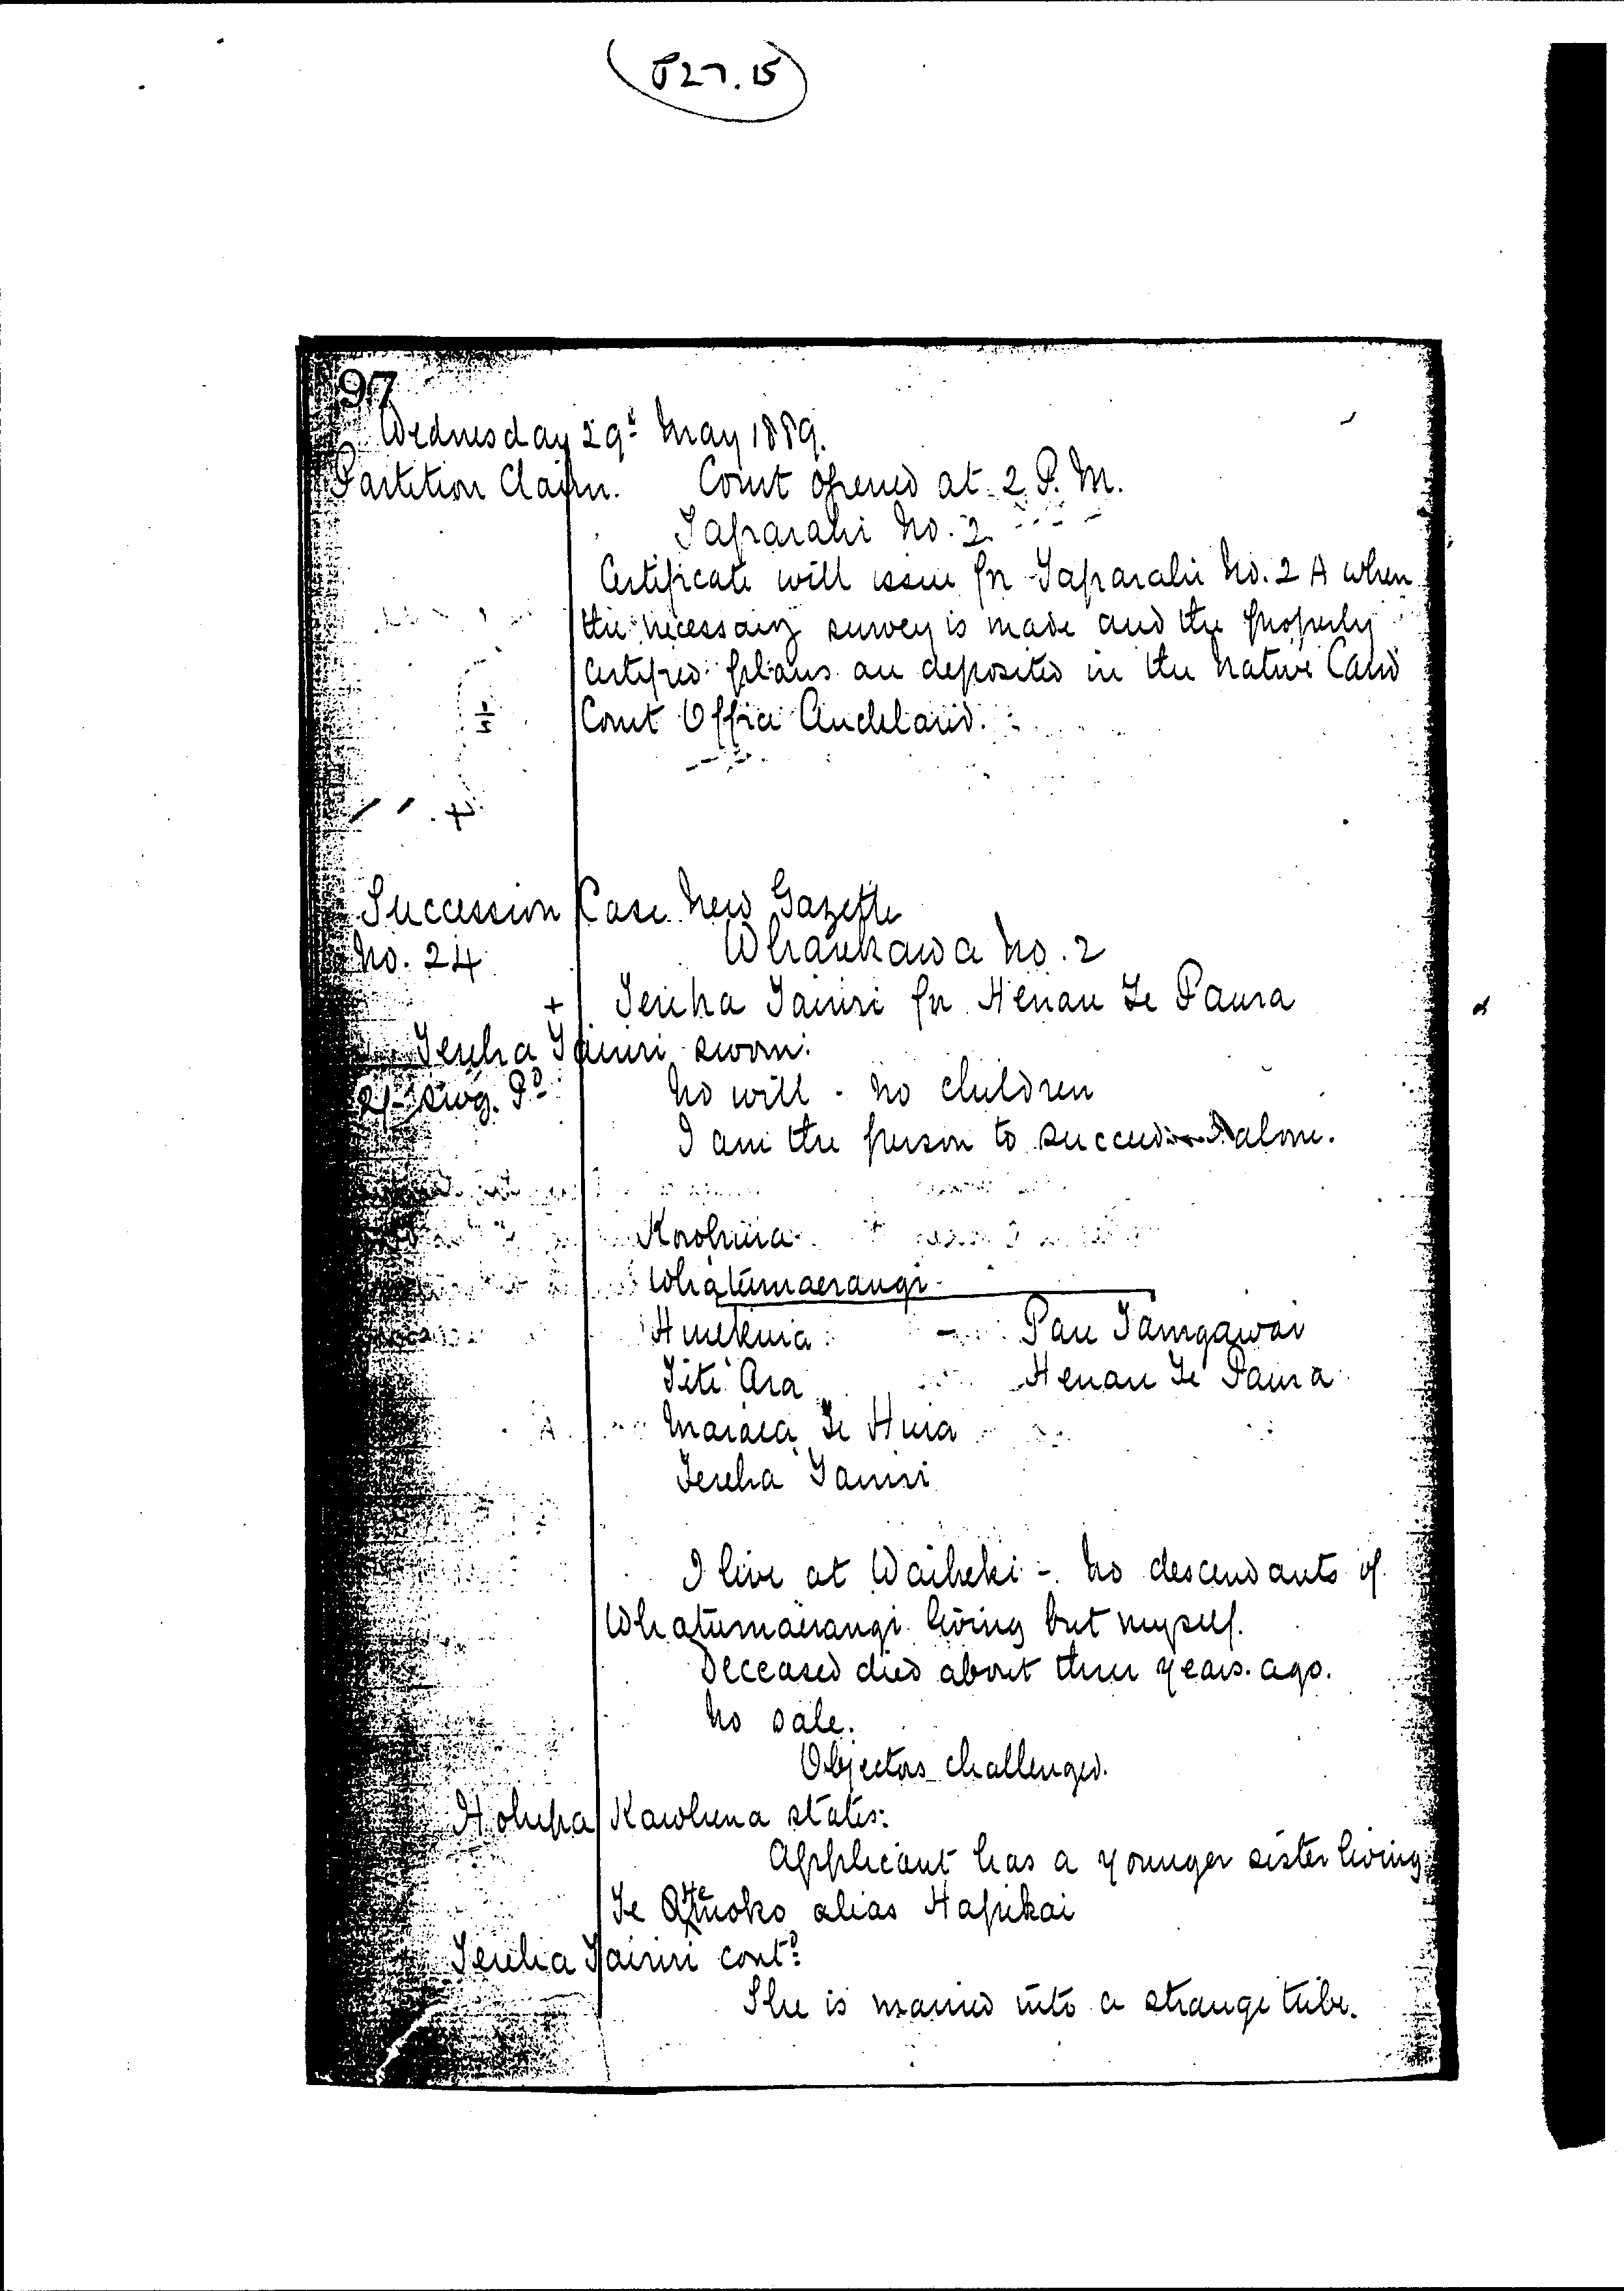 827.15
97
Wednesday 29th May 1889.
Partition Claim. Court opened at 2 P.M.
Taparahi No. 2
Certificate will issue for Taparahi No. 2 A when
the necessary survey is made and the properly
certified plans are deposited in the Native Land
Court Office Auckland.
Succession Case New Gazette
No. 24 Wharekawa No. 2
+ Tereha Tairiri for Henau Te Paura
Tereha Tairiri sworn:
2/- swg. Pd No will - no children
I am the person to succeed alone.
Whatumaerangi
Pau Tamgawai
Titi Ara Henau Te Paura
Maraea Te Huia
Tereha Tairiri
I live at Waiheki - No descendants of
Whatumaerangi living but myself.
Deceased died about three years ago.
No sale.
Objectors challenged.
Hohepa Kawhena states:
Applicant has a younger sister living
Te alias Hapekai
Tereha Tairiri contd:
She is married into a strange tribe.